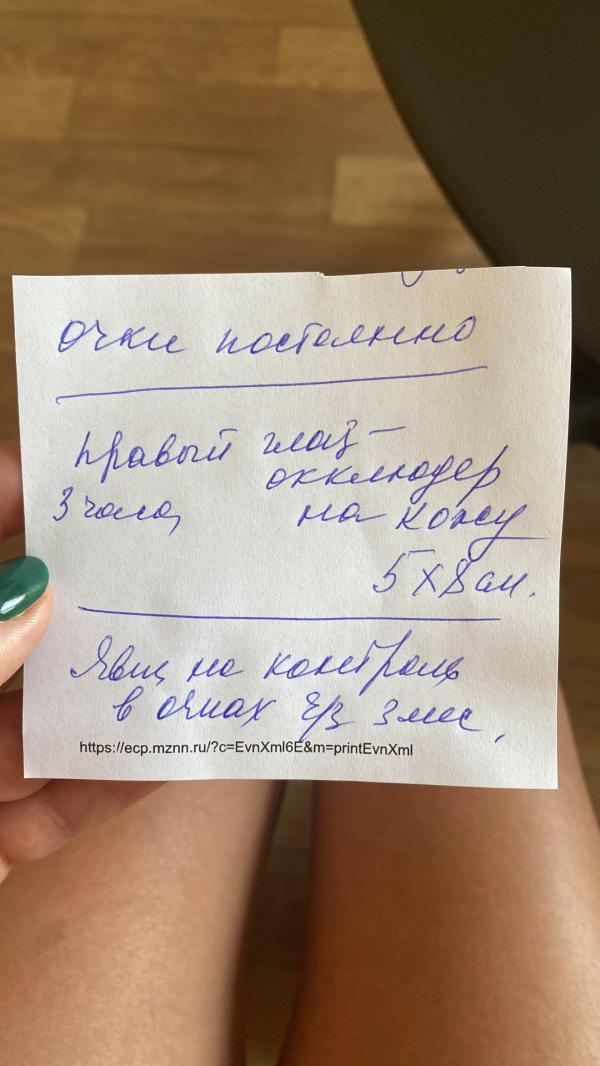 очки постоянно
правый глаз –
окклюдер
3 часа, на кожу
5 х 8 см.
Явка на контроль
в очках чрз 3 мес,
https://ecp.mznn.ru/?c=EvnXml6E&m=printEvnXml